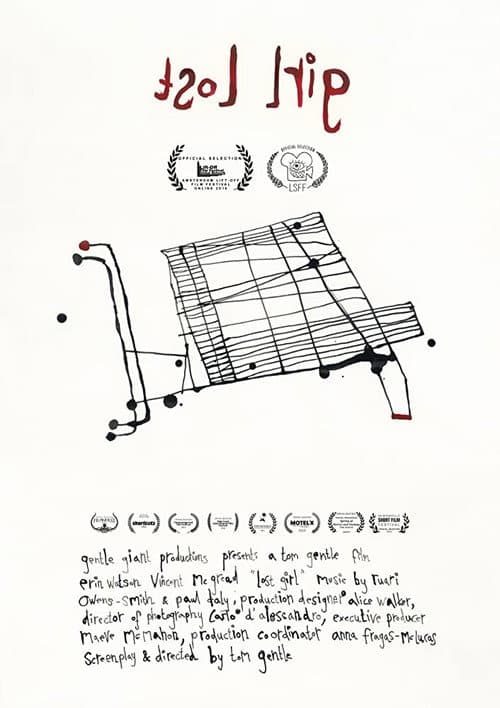 girl Lost
OFFICIAL SELECTION
AMSTERDAM LIFT-OFF
FILM FESTIVAL
OFFICIAL SELECTION
LSFF
shortcutz
MOTELX
SHORT FILM
FESTIVAL
gentle giant productions presents a tom gentle film
erin watson Vincent McGread "lost girl" Music by ruari
Owens-Smith & paul daly, production designer alice walker,
director of photography Carlo d'alessandro, executive producer
Maeve McMahon, production coordinator anna fragas-McLucas
Screenplay & directed by tom gentle